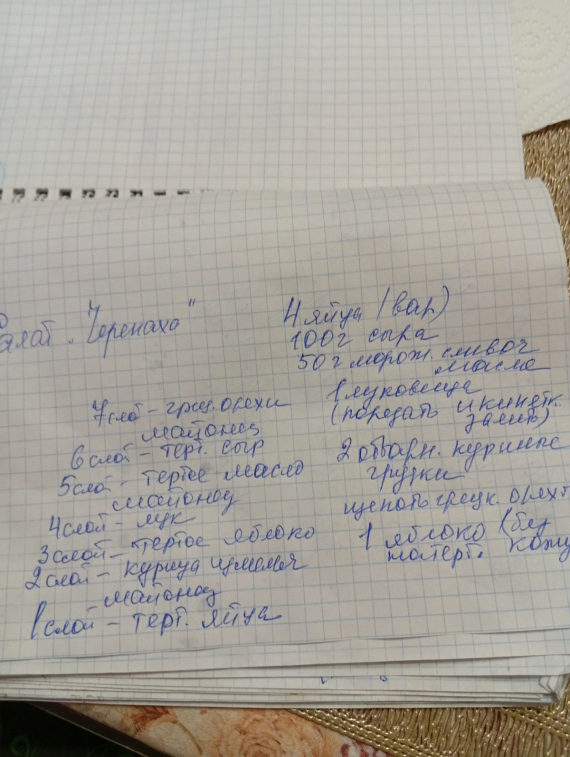 Салат „Черепаха"
4 яйца (вар)
100г сыра
50 г морож. сливоч
масла
1 луковица
(порезать и кипятк.
залить)
2 отварн. куриные
грудки
щепоть грецк. орехов
1 яблоко (без
натерт. кожу
7 слой – грец. орехи
майонез
6 слой – терт. сыр
5 слой – тертое масло
майонез
4 слой – лук
3 слой – тертое яблоко
2 слой – курица измельч
майонез
1 слой – терт. яйца